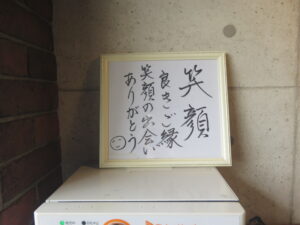 笑顔
良きご縁
笑顔の出会い
ありがとう